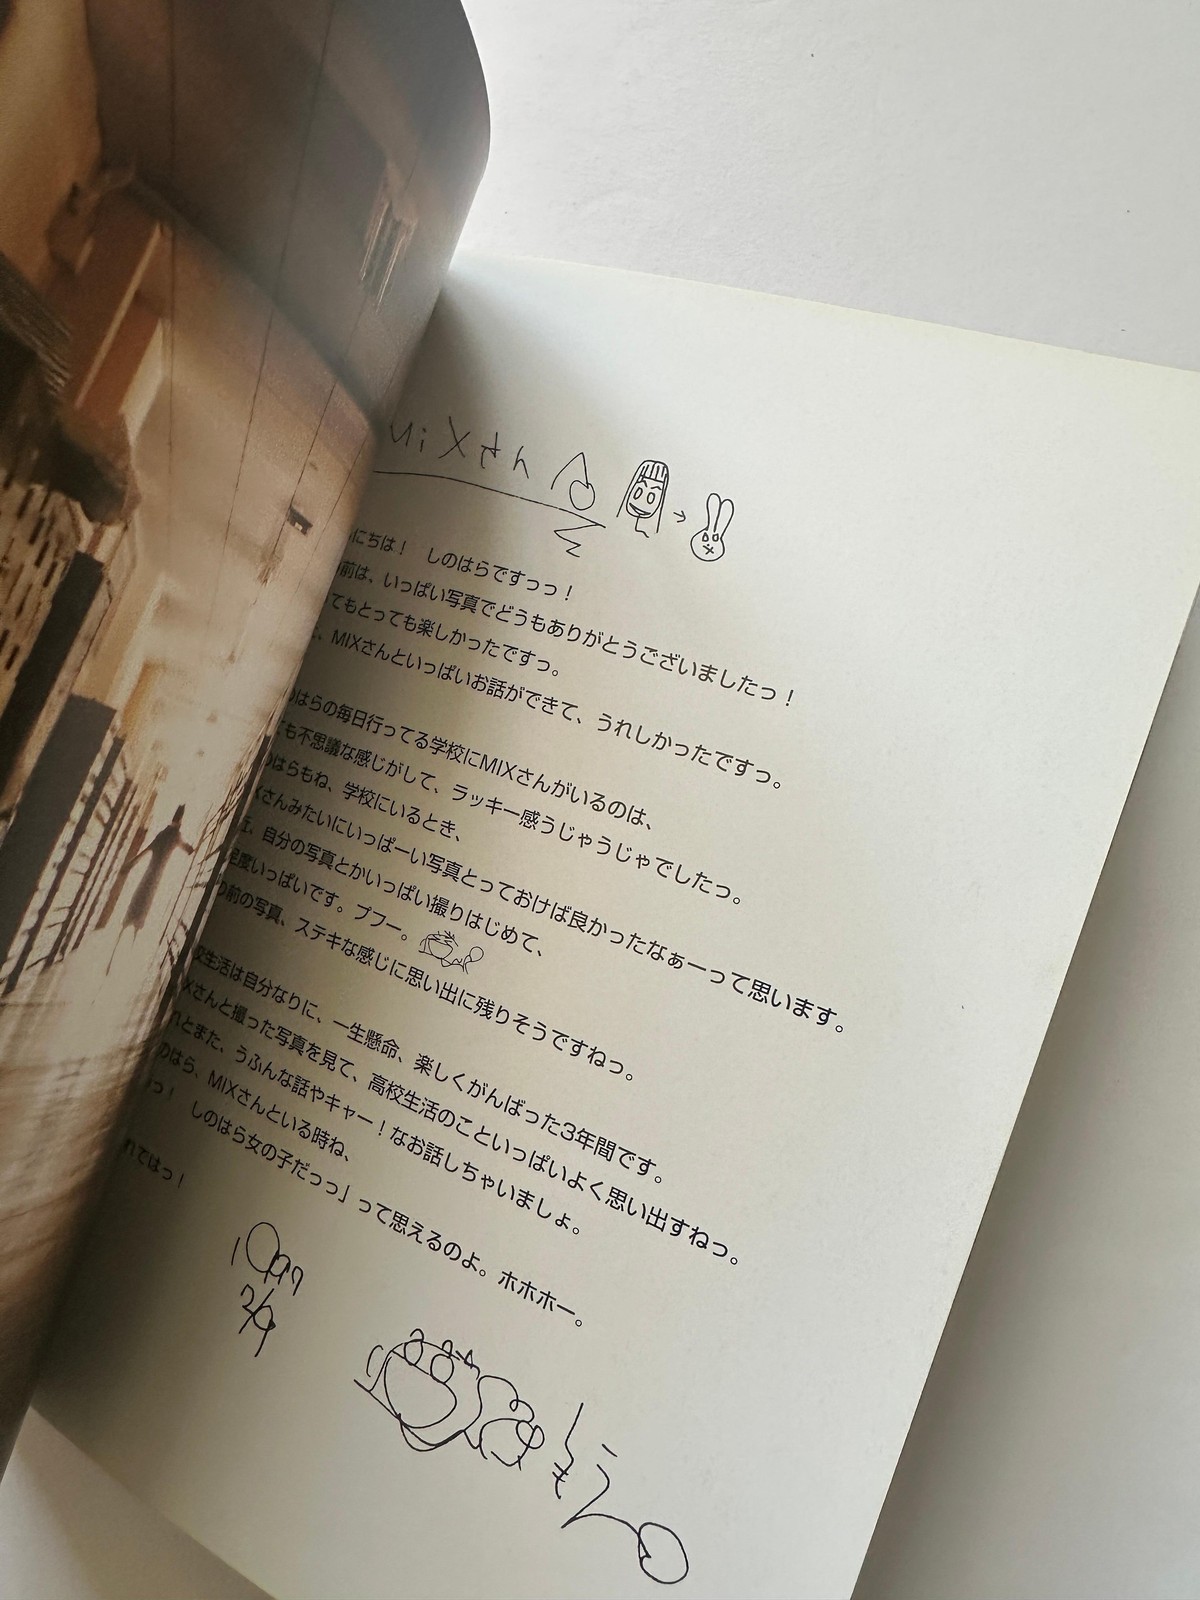 MiXさん
にちは! しのはらですっっ!
前は、いっぱい写真でどうもありがとうございましたっ!
てもとっても楽しかったですっ。
、MIXさんといっぱいお話ができて、うれしかったですっ。
のはらの毎日行ってる学校にMIXさんがいるのは、
ても不思議な感じがして、ラッキー感うじゃうじゃでしたっ。
のはらもね、学校にいるとき、
Xさんみたいにいっぱーい写真とっておけば良かったなぁーって思います。
近、自分の写真とかいっぱい撮りはじめて、
足度いっぱいです。プフー。
の前の写真、ステキな感じに思い出に残りそうですねっ。
校生活は自分なりに、一生懸命、楽しくがんばった3年間です。
Xさんと撮った写真を見て、高校生活のこといっぱいよく思い出すねっ。
れとまた、うふんな話やキャー!なお話しちゃいましょ。
のはら、MIXさんといる時ね、
っ! しのはら女の子だっっ」って思えるのよ。ホホホー。
れではっ!
1997
2/9